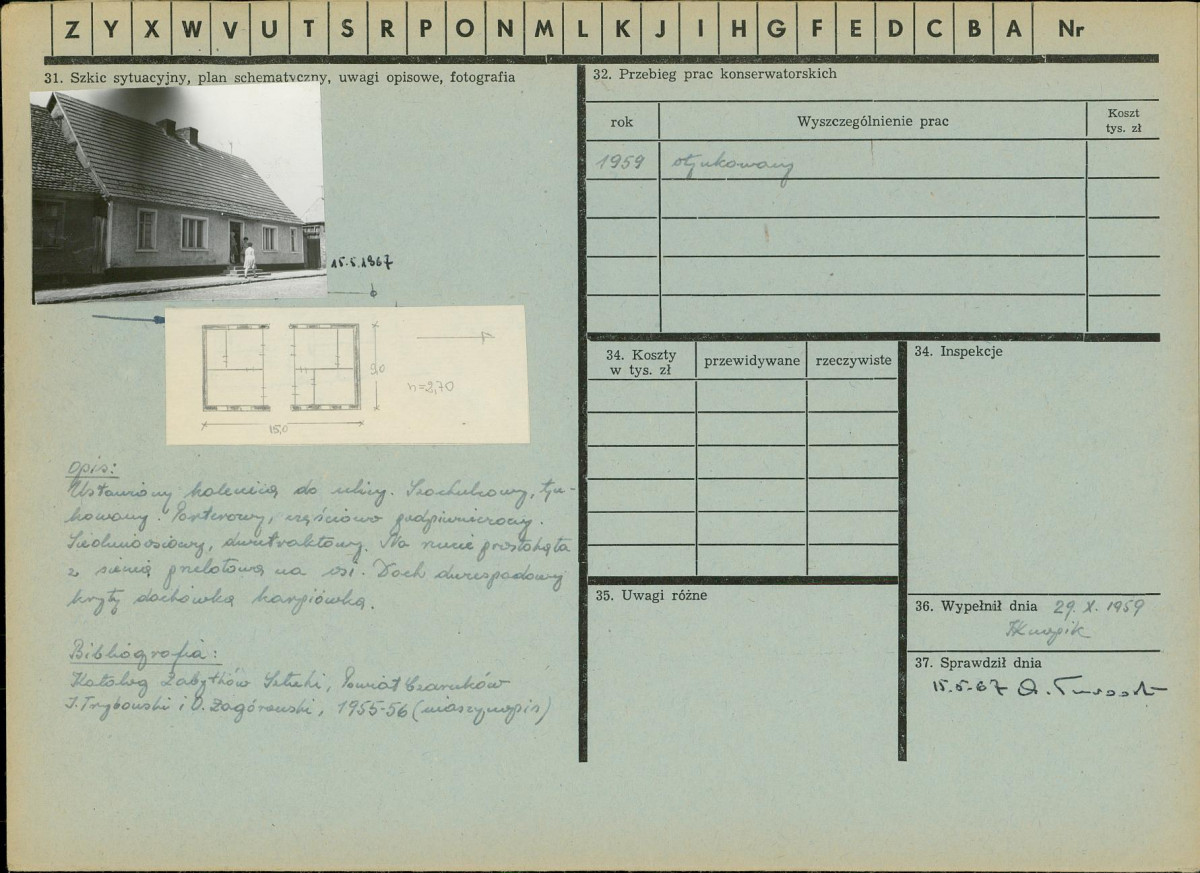 Z Y X W V U T S R P O N M L K J I H G F E D C B A Nr
31. Szkic sytuacyjny, plan schematyczny, uwagi opisowe, fotografia
15.5.1967
9,0
h=2,70
15,0
Opis:
Ustawiony kalenicą do ulicy. Szachulcowy, tyn-
kowany. Parterowy, częściowo podpiwniczony.
Siedmioosiowy, dwutraktowy. Na rzucie prostokąta
z sienią przelotową na osi. Dach dwuspadowy
kryty dachówką karpiówką.
Bibliografia:
Katalog Zabytków Sztuki, Powiat Czarnków
J. Trybowski i O. Zagórowski, 1955-56 (maszynopis)
32. Przebieg prac konserwatorskich
rok Wyszczególnienie prac Koszt
tys. zł
1959 otynkowany
34. Koszty
w tys. zł przewidywane rzeczywiste
34. Inspekcje
35. Uwagi różne
36. Wypełnił dnia 29. X. 1959
37. Sprawdził dnia
15.5.67